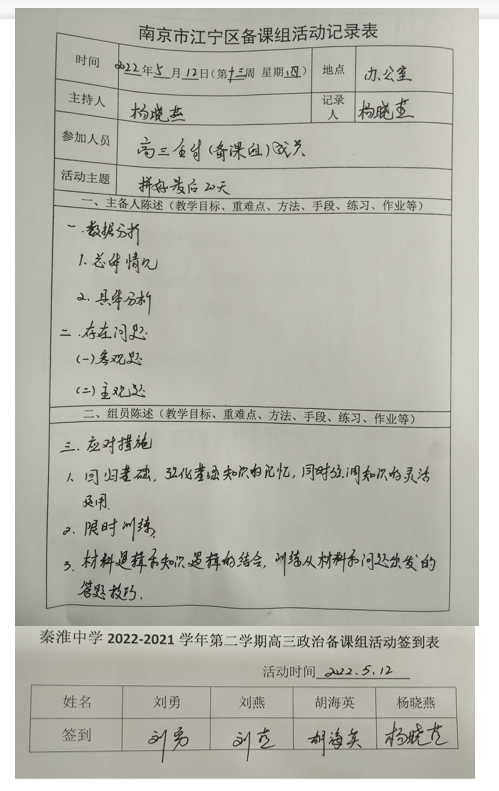 南京市江宁区备课组活动记录表
时间 2022年5月12日(第十三周 星期四) 地点 办公室
主持人 杨晓燕 记录人 杨晓燕
参加人员 高三全体(备课组)成员
活动主题 拼好最后20天
一、主备人陈述(教学目标、重难点、方法、手段、练习、作业等)
一.数据分析
1.总体情况
2.具体分析
二.存在问题
(一)客观题
(二)主观题
二、组员陈述(教学目标、重难点、方法、手段、练习、作业等)
三.应对措施
1.回归基础,强化基础知识的记忆,同时强调知识的灵活
运用.
2.限时训练.
3.材料逻辑和知识逻辑的结合,训练从材料和问题出发的
答题技巧.
秦淮中学 2022-2021 学年第二学期高三政治备课组活动签到表
活动时间 2022.5.12
姓名 刘勇 刘燕 胡海英 杨晓燕
签到 刘勇 刘燕 胡海英 杨晓燕